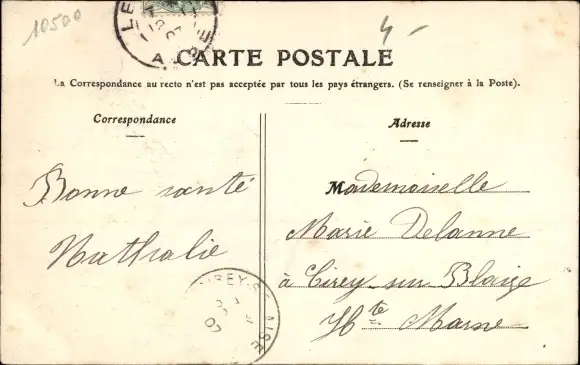 10500
4 -
CARTE POSTALE
La Correspondance au recto n'est pas acceptée par tous les pays étrangers. (Se renseigner à la Poste).
Correspondance
Adresse
Bonne santé
Nathalie
Mademoiselle
Marie Delanne
à Cirey-sur Blaize
Hte Marne